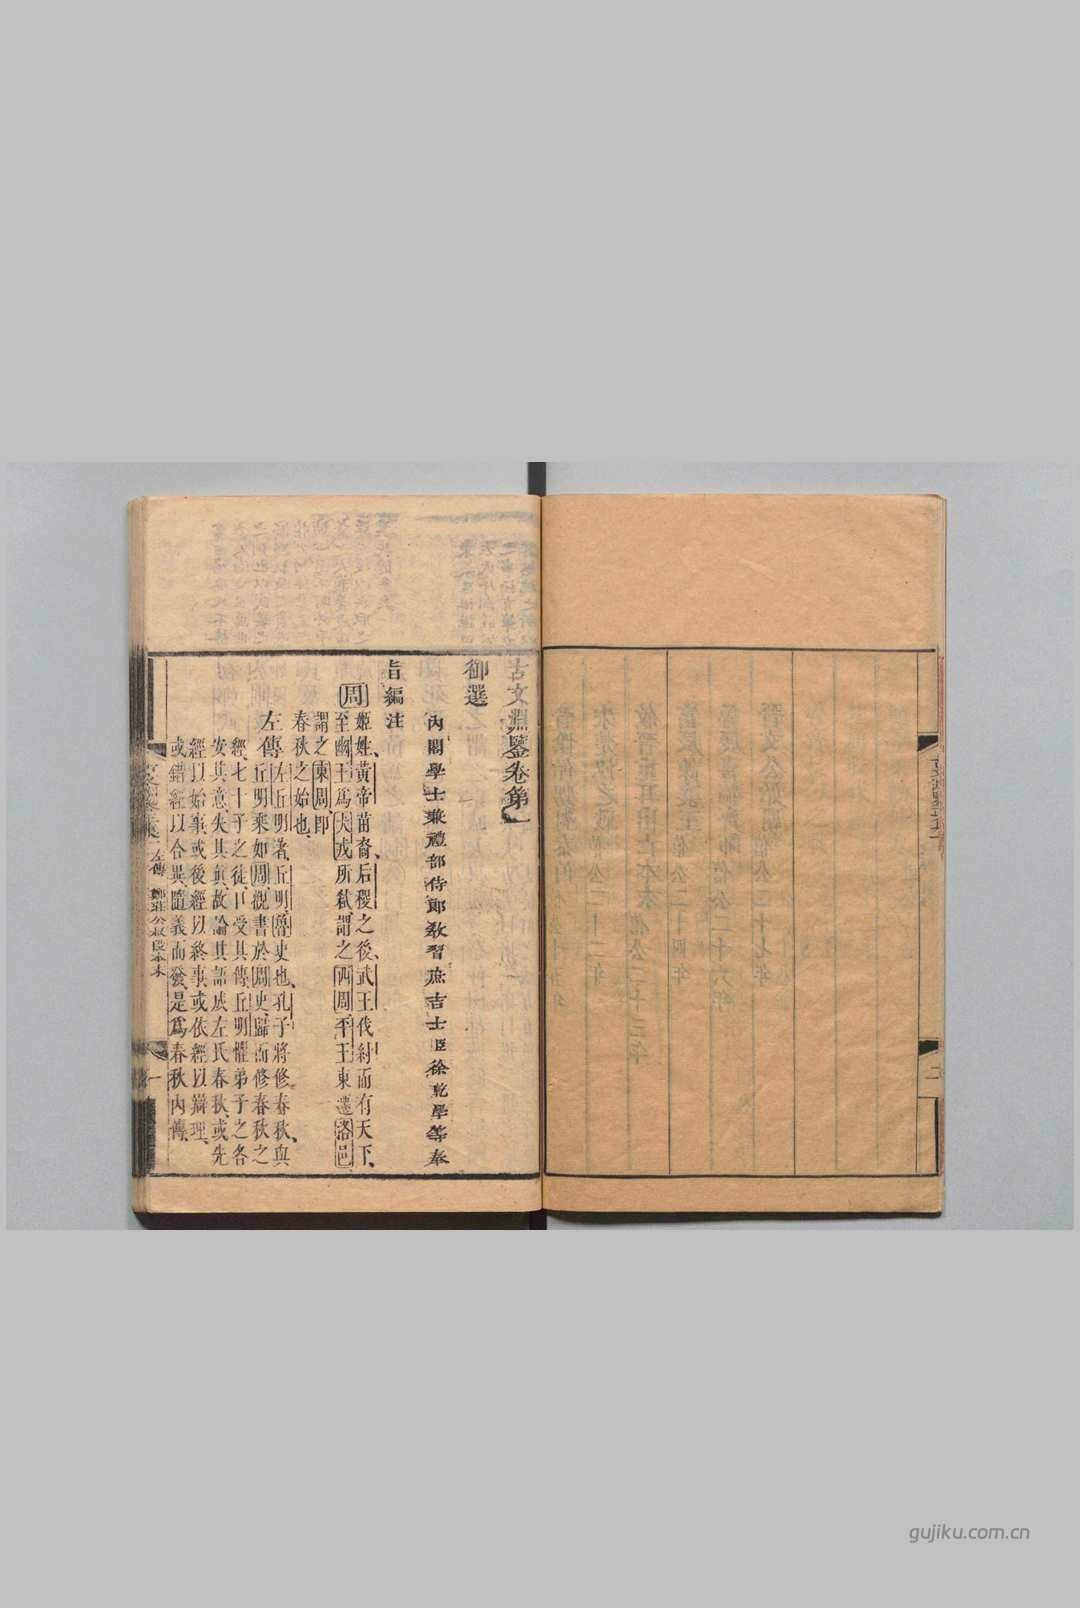 古文淵鑒卷第一
御選
內閣學士兼禮部侍郎教習庶吉士臣徐乾學等奉
旨編注
周
姬姓黃帝苗裔后稷之後武王伐紂而有天下
至幽王爲犬戎所弒謂之西周平王東遷洛邑
謂之東周即
春秋之始也
左傳
左丘明著丘明魯史也孔子將修春秋與
丘明乘如周觀書於周史歸而修春秋之
經七十子之徒口受其傳丘明懼弟子之各
安其意失其真故論其語成左氏春秋或先
經以始事或後經以終事或依經以辯理
或錯經以合異隨義而發是爲春秋內傳
左傳 鄭莊公叔段本末
一
二
gujiku.com.cn